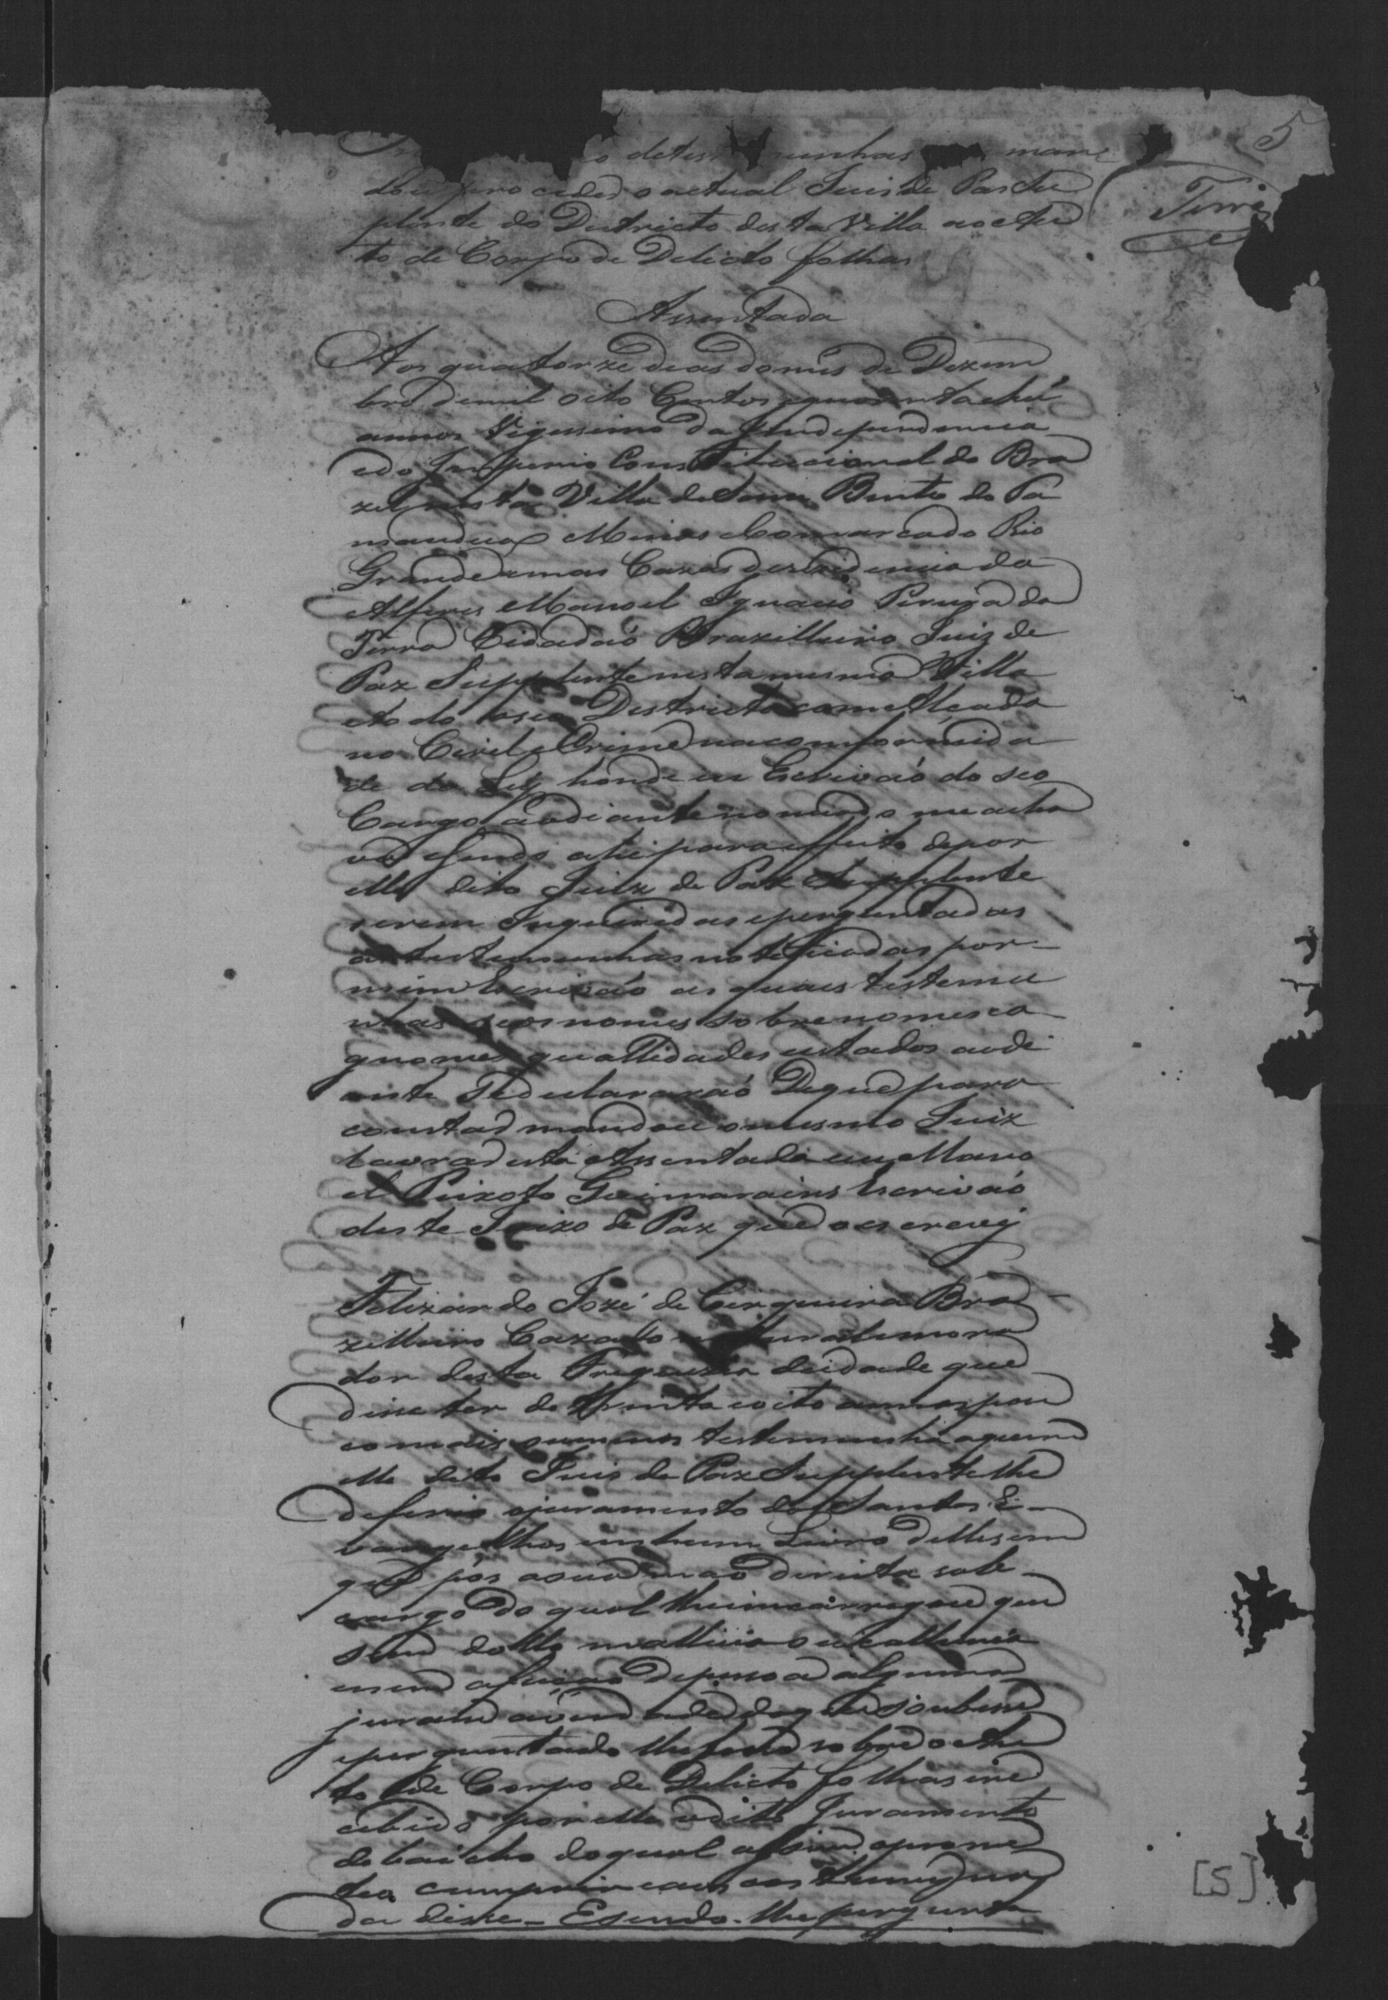 5
detestemunhas man
dou proceder o actual Juis de Paz Su
plente do Destricto desta Villa ao Au
to de Corpo de Delicto folhas
Terra
Assentada
Aos quatorze dias do mes de Dezem
bro de mil oito Centos quarenta e hú
annos Vigessimo da Independencia
e do Imperio Constitucional do Bra
zil nesta Villa de Sam Bento do Ta
manduá Minas e Comarca do Rio
Grande em as Cazas de rezidencia do
Alferes Manoel Ignacio
Terra Cidadaó Brazilleiro Juiz de
Paz Supplente nesta mesma Villa
e todo o seu Destricto com Alçada
no Civel e Crime na comformida
de da Ley honde eu Escrivaó do seo
Cargo ao diante nomeado me acha
va sendo ahi para effeito de por
elle dito Juiz de Paz Supplente
serem Inqueridas e perguntadas
as testemunhas notificadas por
mim Escrivaó as quais testemu
nhas seos nomes sobrenomes co
gnomes quallidades estados ao di
ante se declararaó De que para
constar mandou o mesmo Juiz
lavrar esta Assentada eu Mano
el Peixoto Guimarains Escrivaó
deste Juizo de Paz que o escrevj
Felizardo Jozé de Cerqueira Bra
zilleiro Cazado natural e mora
dor desta Freguezia de idade que
disse ter de trinta e oito annos pou
co mais ou menos testemunha a quem
elle dito Juis de Paz Supplente lhe
deferio o juramento dos Santos E
vangelhos em hum Livro delles em
que pós a sua mao direita sob
cargo do qual lhe imcarregou que
sem dollo mallicia ou
nem afeiçaó de pesoa alguma
jurasse a verdade do que soubesse
e perguntado lhe fosse sobre o Au
to de Corpo de Delicto folhas e re
cebido por elle o dito Juramento
debaicho do qual assim o prome
teo cumprir e aos Custumes
da disse - E sendo-lhe pergunta
[5]